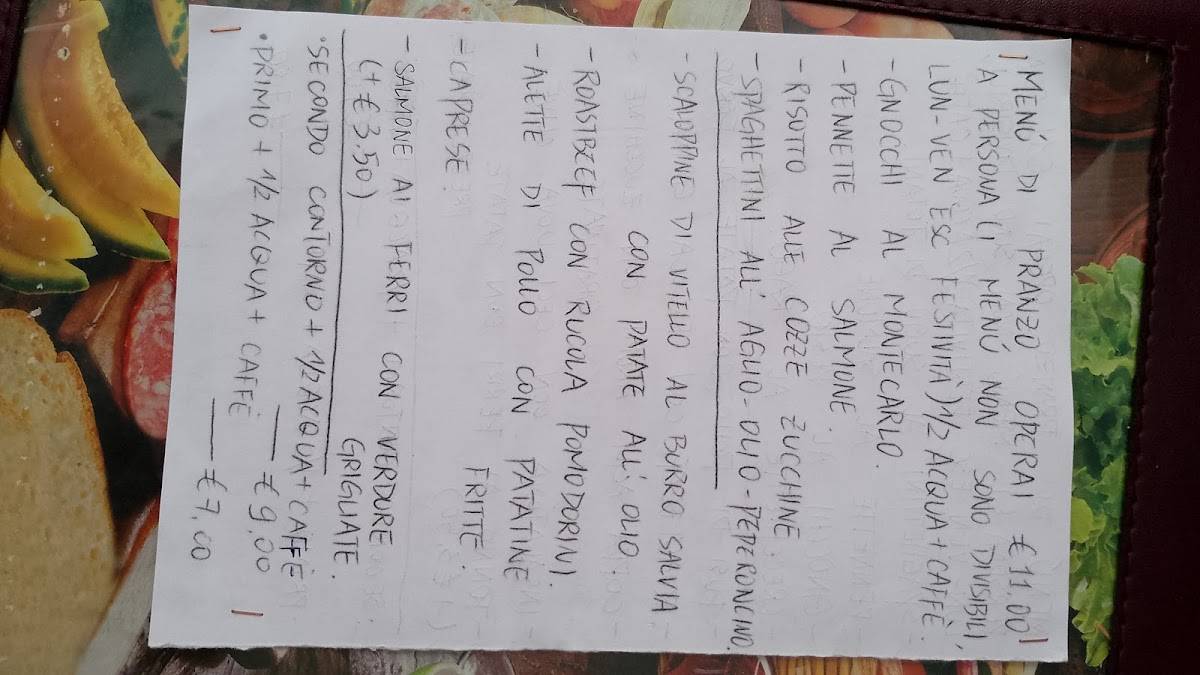 MENÚ DI PRANZO OPERAI €11,00
A PERSONA (I MENÚ NON SONO DIVISIBILI,
LUN-VEN ESC FESTIVITÀ) 1/2 ACQUA+CAFFÈ.
-GNOCCHI AL MONTECARLO.
-PENNETTE AL SALMONE.
-RISOTTO ALLE COZZE ZUCCHINE.
-SPAGHETTINI ALL'AGLIO-OLIO-PEPERONCINO.
-SCALOPPINE DI VITELLO AL BURRO SALVIA
CON PATATE ALL'OLIO.
-ROASTBEEF CON RUCOLA POMODORINI.
-ALETTE DI POLLO CON PATATINE
FRITTE.
-CAPRESE.
-SALMONE AI FERRI CON VERDURE
(+€3.50) GRIGLIATE.
•SECONDO CONTORNO+1/2ACQUA+CAFFÈ
€9,00
•PRIMO+1/2ACQUA+CAFFÈ €7,00